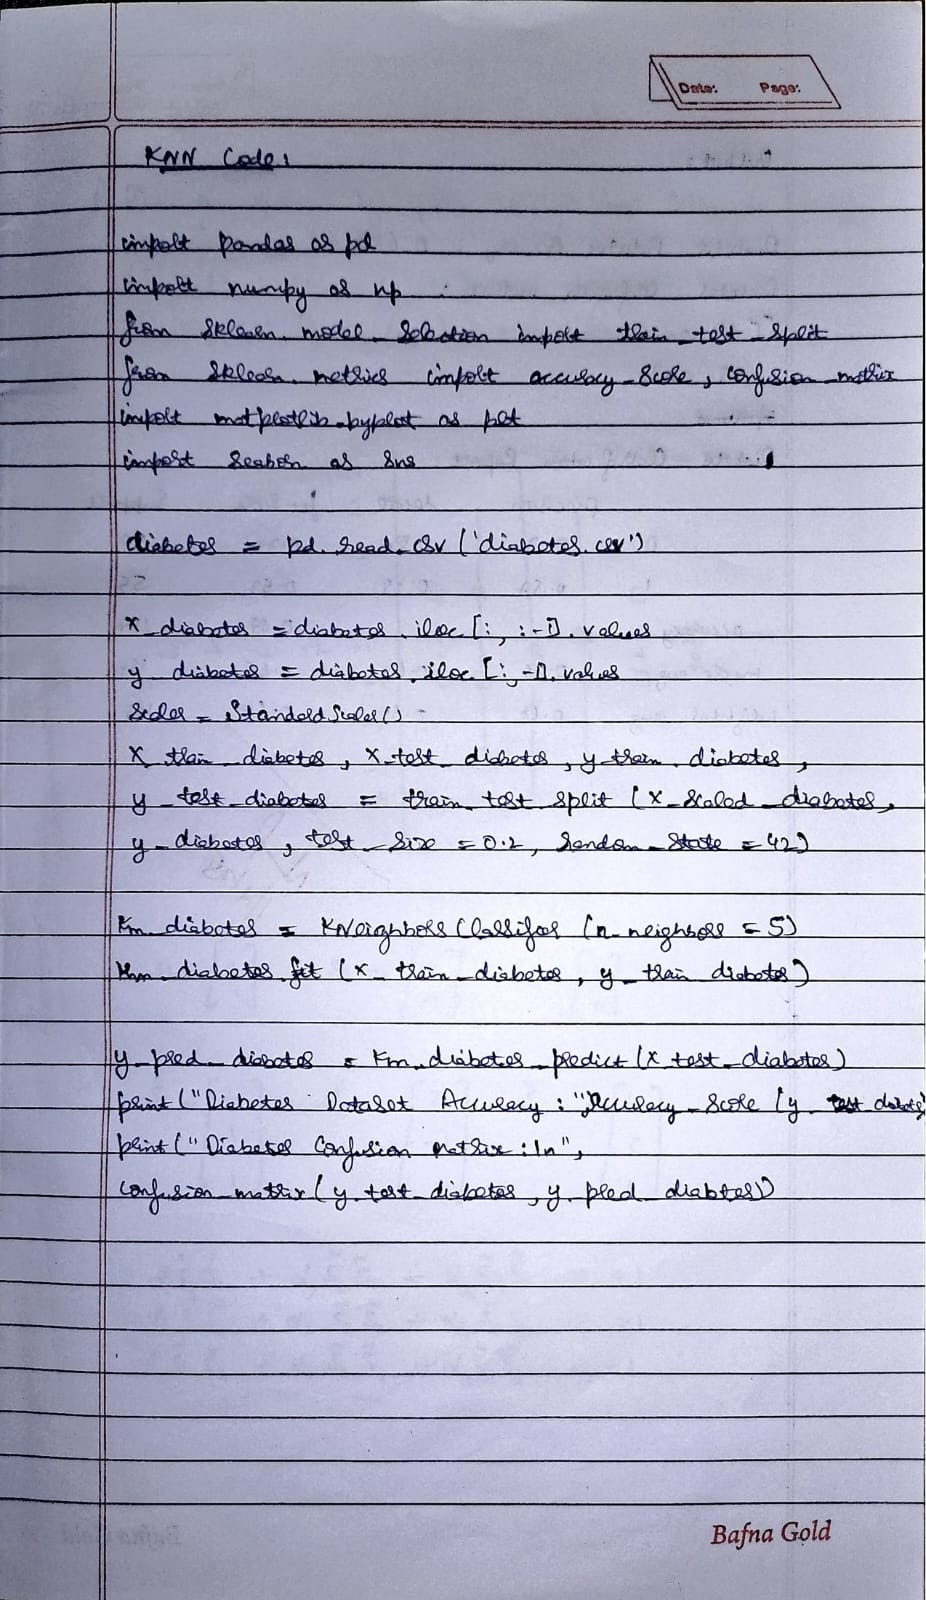 Date: Page:
KNN Code:
import pandas as pd
import numpy as np
from sklearn. model_selection import train_test_split
from sklearn. metrics import accuracy_score, confusion_matrix
import matplotlib.pyplot as plt
import seaborn as sns
diabetes = pd.read_csv ('diabetes.csv')
X_diabetes = diabetes.iloc [:, :-1].values
y_diabetes = diabetes.iloc [:, -1].values
Scaler = StandardScaler()
X_train_diabetes, X_test_diabetes, y_train_diabetes,
y_test_diabetes = train_test_split (X_scaled_diabetes,
y_diabetes, test_size = 0.2, random_state = 42)
knn_diabetes = KNeighborsClassifier (n_neighbors = 5)
knn_diabetes.fit (X_train_diabetes, y_train diabetes)
y_pred_diabetes = knn_diabetes.predict (X_test_diabetes)
print ("Diabetes Dataset Accuracy:", accuracy_score (y_test
print ("Diabetes Confusion matrix:\n",
confusion_matrix (y_test_diabetes, y_pred_diabtes))
Bafna Gold